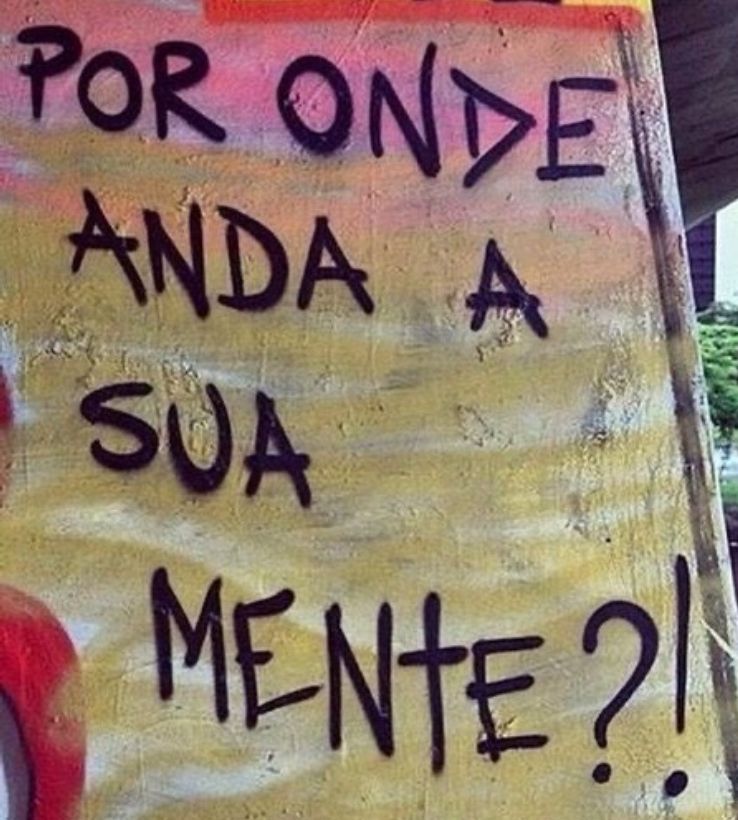 POR ONDE
ANDA A
SUA
MENTE?!